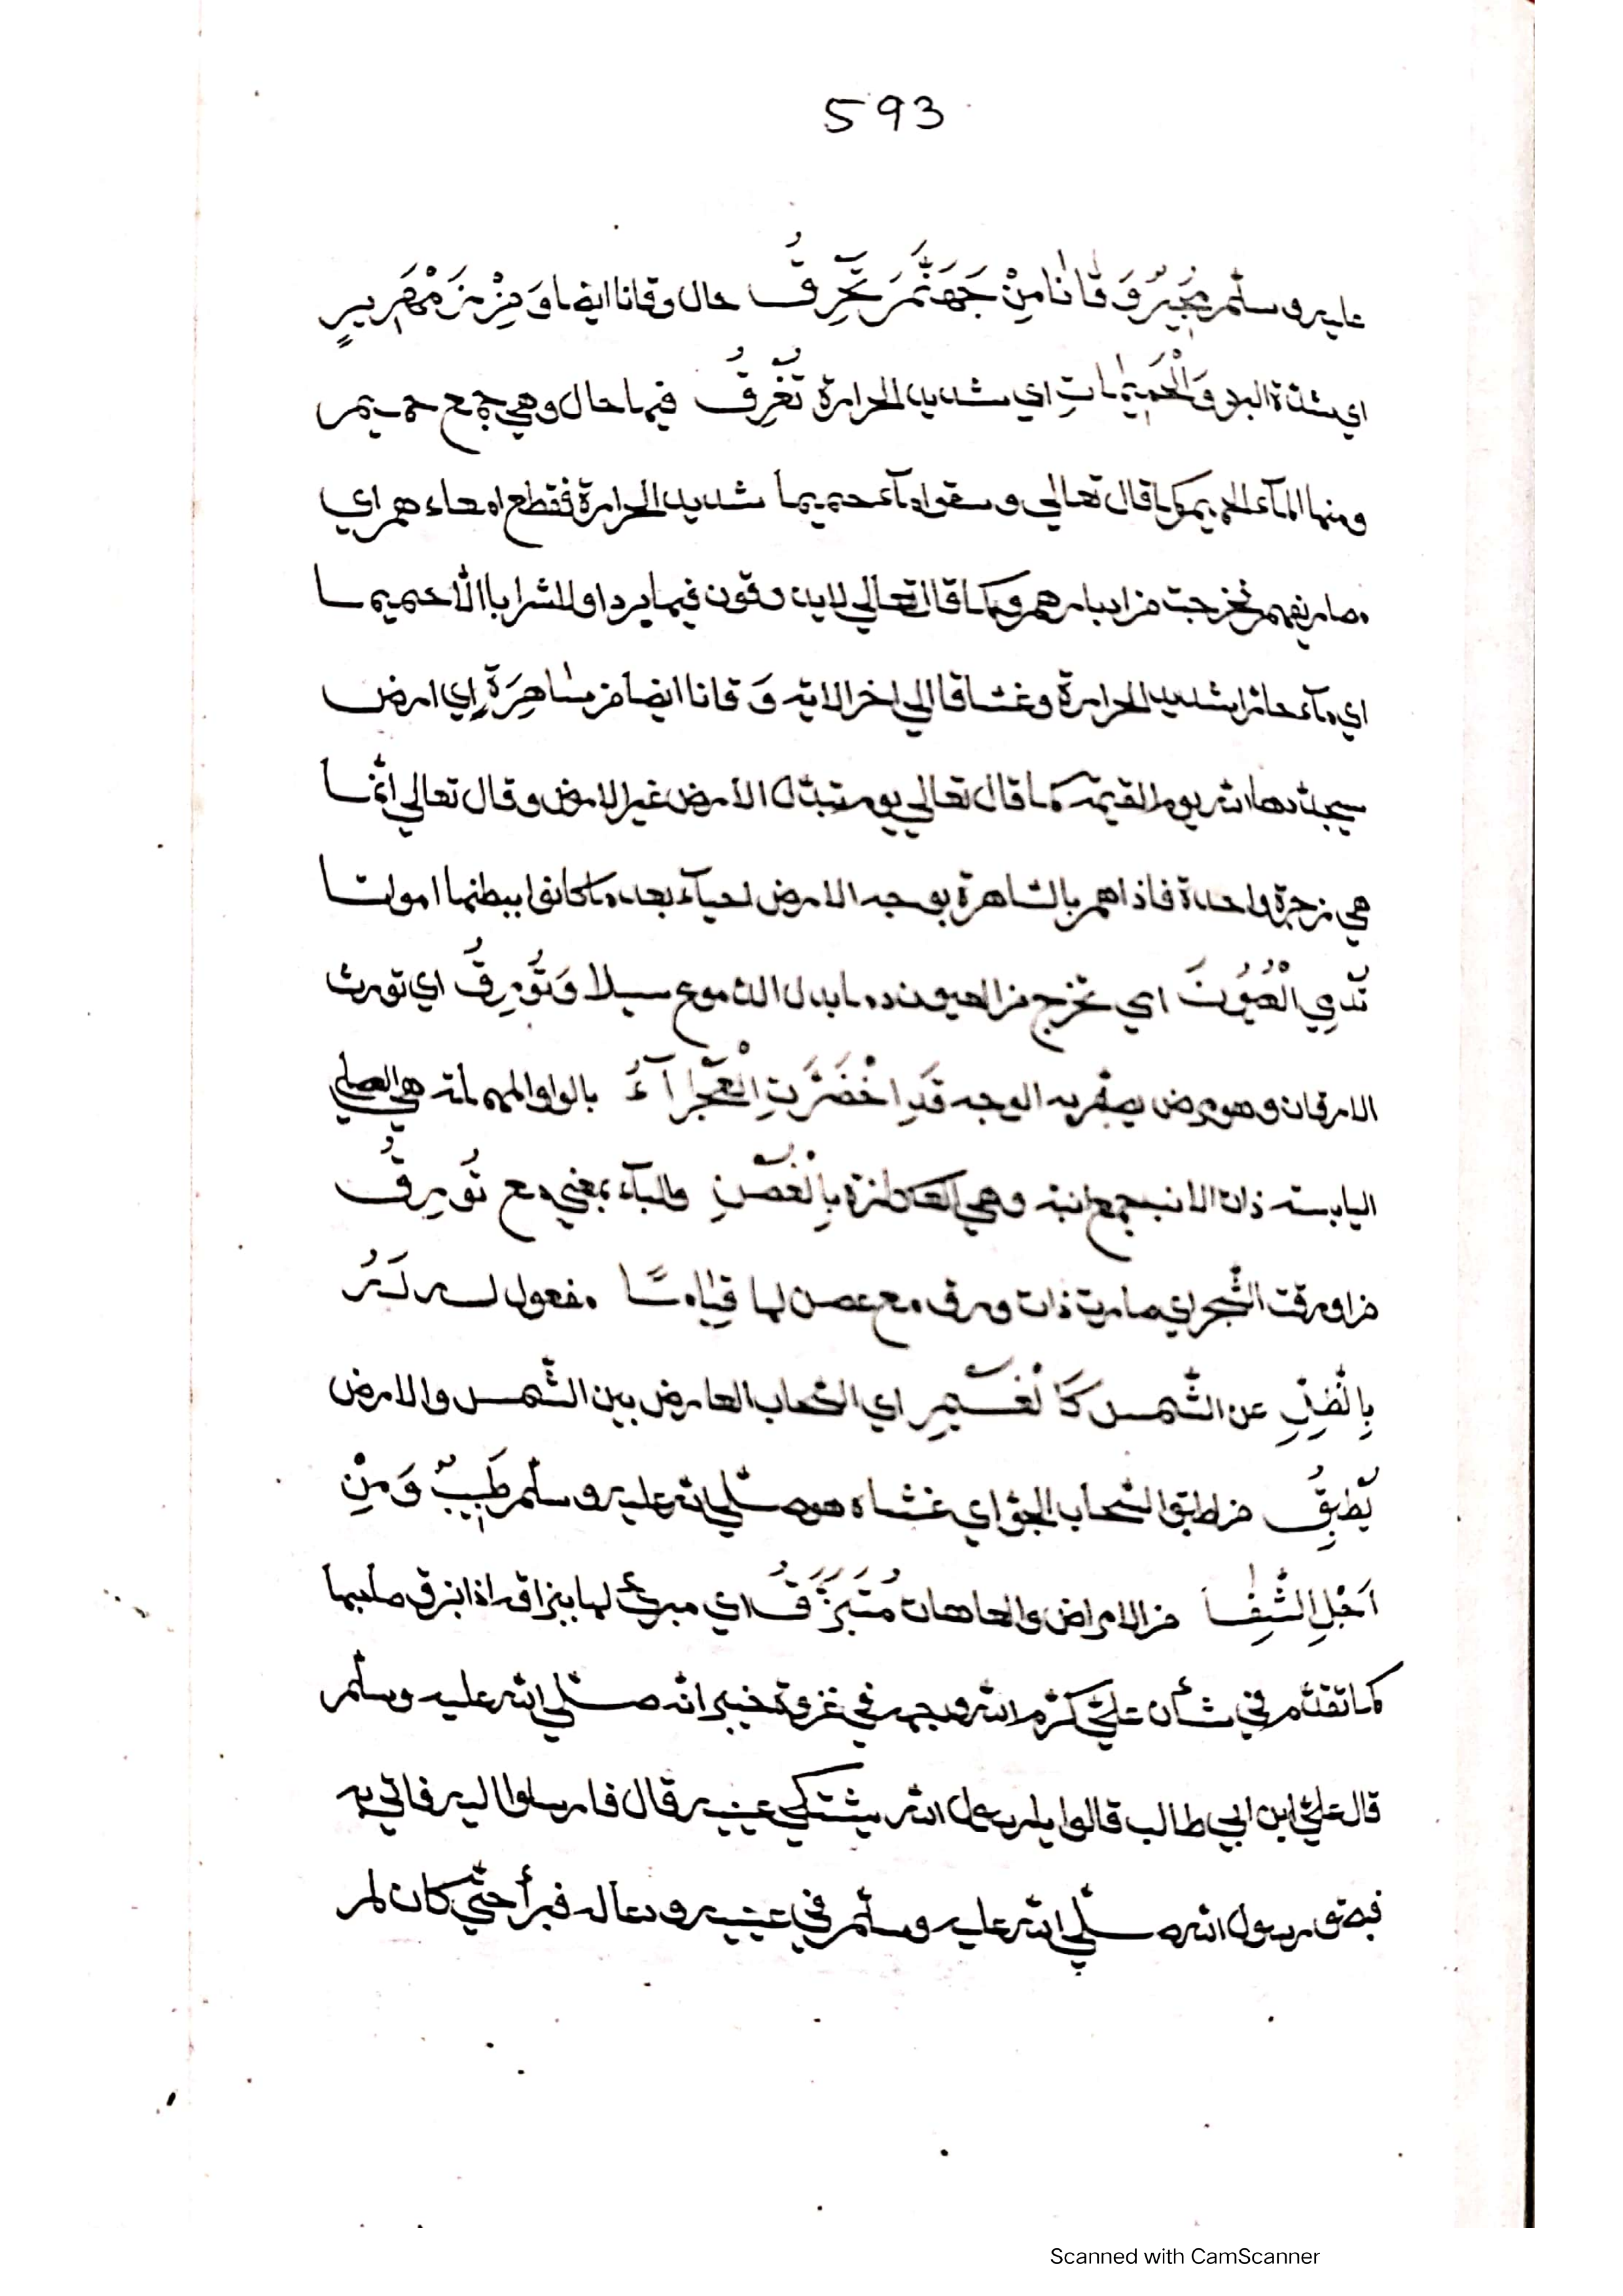 593
عليه وسلّم مُجِيرٌ وَقَانَا مِنْ جَهَنَّمَ تَحَرُّقُ حال وقانا ايضا وَمِنْ زَمْهَرِيرٍ
اي شدّة البرد وَالْحَمِيمَاتِ اي شديد الحرارة تُغْرِقُ فيها حال وهي جمع حميم
ومنها المآء الحميم كما قال تعالي وسقوا مآء حميما شديد الحرارة فقطع امعاء هم اي
مصارينهم فخرجت من ادبارهم وكما قال تعالي لايذوقون فيها بردا ولاشرابا الّا حميما
اي مآء حارّا شديد الحرارة وغساقا الي اخر الاية وَقانا ايضا من سَاهِرَةٍ اي ارض
يجدّدها الله يوم القيمة كما قال تعالي يوم تبدّل الأرض غير الارض وقال تعالي انّما
هي زجرة واحدة فاذاهم بالسّاهرة بوجه الارض احيآء بعد ما كانوا ببطنها امواتا
تُدْمِي الْعُيُونَ اي تخرج من العيون دما بدل الدّموع سيلا وَتُورِقُ اي تورث
الارقان وهو مرض يصفّر به الوجه قَدِ اخْضَرَّتِ الْعَجْرَآءُ بالواو المهملة هي العصي
اليابسة ذات الانب جمع انبة وهي العكازة بِالْغُصْنِ والبآء بمعني مع تُورِقُ
من اورقت الشّجر اي صارت ذات ورق مع غصن لها
عن الشّمس كَالْغَيْمِ اي السّحاب العارض بين الشّمس والارض
يُطْبِقُ من اطبق السّحاب الجوّ اي غشاه هو صلّي الله عليه وسلّم طَبِيبٌ وَمِنْ
اَجْلِ الشِّفَا من الامراض والعاهات مُتَبَزَّقُ اي مبرئ لها ببزاقه اذا بزق عليها
كما تقدّم في شأن عليّ كرّم الله وجهه في غزوة خيبر انّه صلّي الله عليه وسلّم
قال عليّ ابن ابي طالب قالوا يارسول الله يشتكي عينيه قال فارسلوا اليه فاتي به
فبصق رسول الله صلّي الله عليه وسلّم في عينيه ودعا له فبرأ حتّي كان لم
Scanned with CamScanner